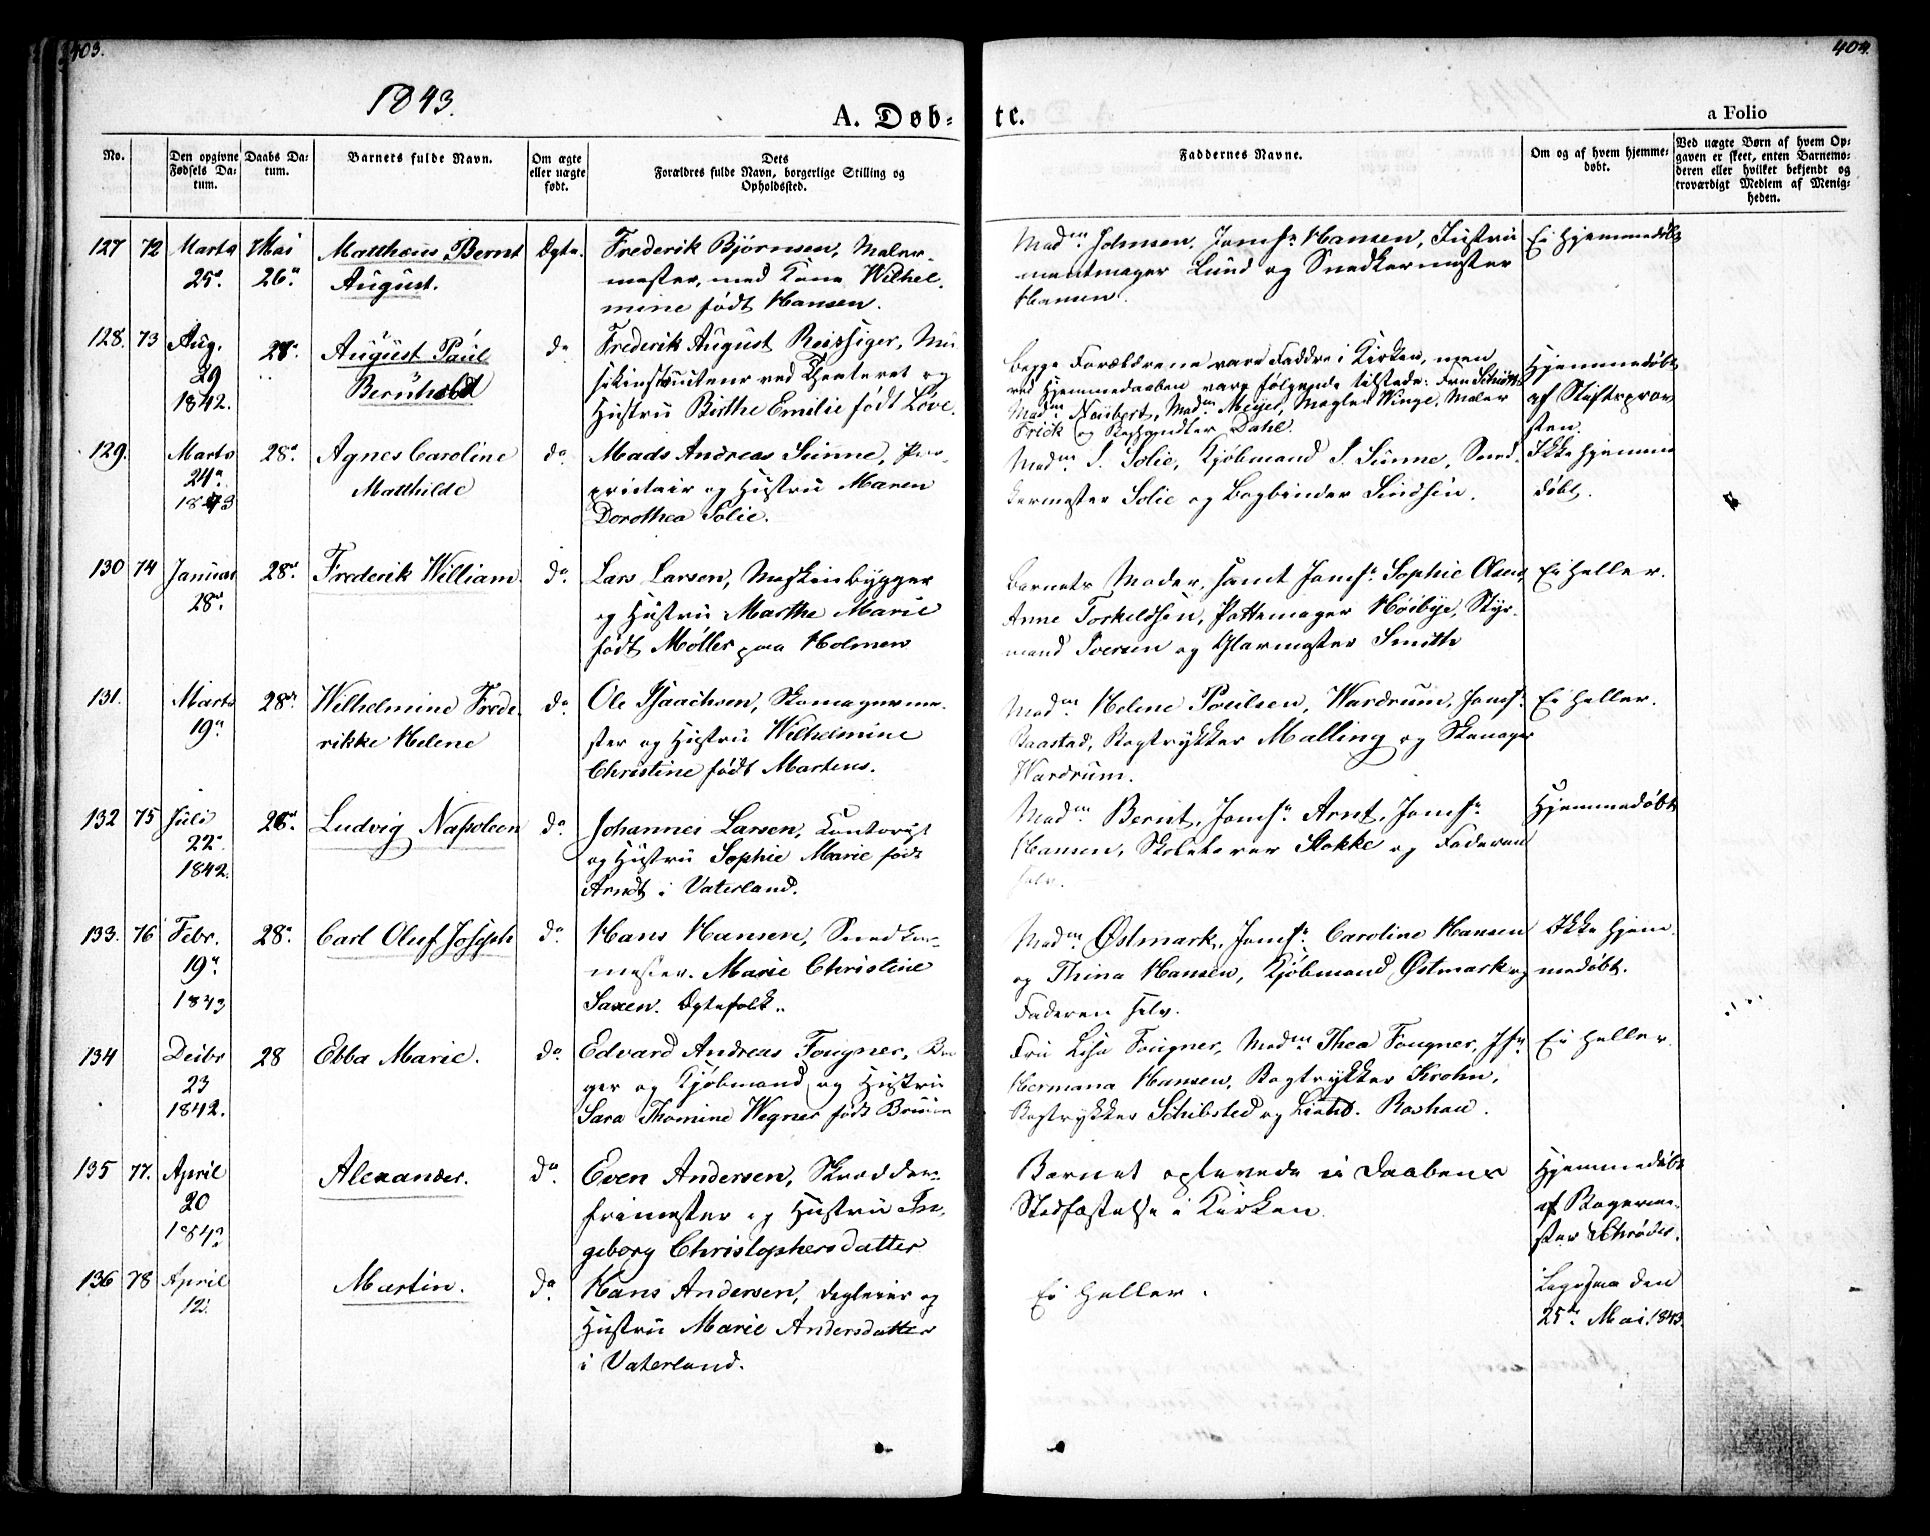 403.
404.
1843.
A. Døb-
te.
a Folio
No.
Den opgivne
Fødsels Da-
tum.
Daabs Da-
tum.
Barnets fulde Navn.
Om ægte
eller uægte
født.
Dets
Forældres fulde Navn, borgerlige Stilling og
Opholdssted.
Faddernes Navne.
Om og af hvem hjemme-
døbt.
Ved uægte Børn af hvem Op-
gaven er skeet, enten Barnemo-
deren eller hvilket bekjendt og
troværdigt Medlem af Menig-
heden.
127 72 Marts Mai Matthæus Bernt Ægte. Frederik Bjørnsen, Maler-
25. 26. August. mester, med Kone Wilhel-
mine født Hansen.
Madm. Johnsen, Jomfr. Hansen, Instru
mentmager Lund og Snedkermester
Hansen.
Ei Hjemmedøbt
128. 73 Aug. 28. August Paul do Frederik August Reissiger, Mu
29 Bernhold sikinstructeur ved Theateret og
1842. Hustru Birthe Emilie født Løve.
Begge Forældrene vare Faddre i Kirken, men
ved Hjemmedaaben vare følgende tilstede: Fru
Madm. Neubert, Madm. Meyer, Mægler Winge, Maler
Frick og Dahl.
Hjemmedøbt
af Stiftsprov
sten.
129. Marts 28. Agnes Caroline do Mads Andreas Sünne, Pro-
24. Matthilde prietair og Hustru Maren
1843 Dorothea Solie.
Madm. S. Solie, Kjøbmand S. Sünne, Sned-
kermester Solie og Bogbinder Lindsén.
Ikke hjemme
døbt.
130 74 Januar 28. Frederik William do Lars Larsen, Maskinbygger
28. og Hustru Marthe Marie
født Møller paa Holmen
Barnets Moder, samt Jomfr. Sophie Olsen,
Anne Torkeldsen, Pottemager Høibye, Styr-
mand Iversen og Glarmester Smith
Ei heller.
131. Marts 28. Wilhelmine Frede- do Ole Isaachsen, Skomagerme-
19. rikke Helene ster og Hustru Wilhelmine
Christine født Martens.
Madm. Helene Poulsen, Wardrum, Jomfr.
Baastad, Bogtrykker Malling og Skomager
Wardrum.
Ei heller.
132 75 Juli 28. Ludvig Napoleon do Johannes Larsen, Kontorist
22. og Hustru Sophie Marie født
1842. Arndt i Vaterland.
Madm. Bernt, Jomfr. Arnt, Jomfr.
Hansen, Skolelærer Stokke og Faderen
selv.
Hjemmedøbt
133. 76 Febr. 28. Carl Oluf Joseph do Hans Hansen, Snedker-
19. mester. Marie Christine
1843 Saxen. Ægtefolk.
Madm. Østmark, Jomfr. Caroline Hansen
og Thina Hansen, Kjøbmand Østmark og
Faderen selv.
Ikke hjem-
medøbt.
134 Decbr 28 Ebba Marie. do Edvard Andreas Fougner, Bo
23 ger og Kjøbmand og Hustru
1842. Sara Thomine Wegner født Bruun
Fru Lisa Fougner, Madm. Thea Fougner, Jfr.
Hermana Hansen, Bogtrykker Krohn,
Bogtrykker Schibsted og
Ei heller.
135 77. April Alexander. do Even Andersen, Skrædder-
20 frimester og Hustru In-
1843 geborg Christophersdatter
Barnet oplevede ei Daabens
Stadfæstelse i Kirken.
Hjemmedøbt
af Bagerme-
ster Schrøder.
136 78 April Martin. do Hans Andersen, Dagleier og
12. Hustru Marie Andersdatter
i Vaterland.
Ei heller.
den
25de Mai 1843.